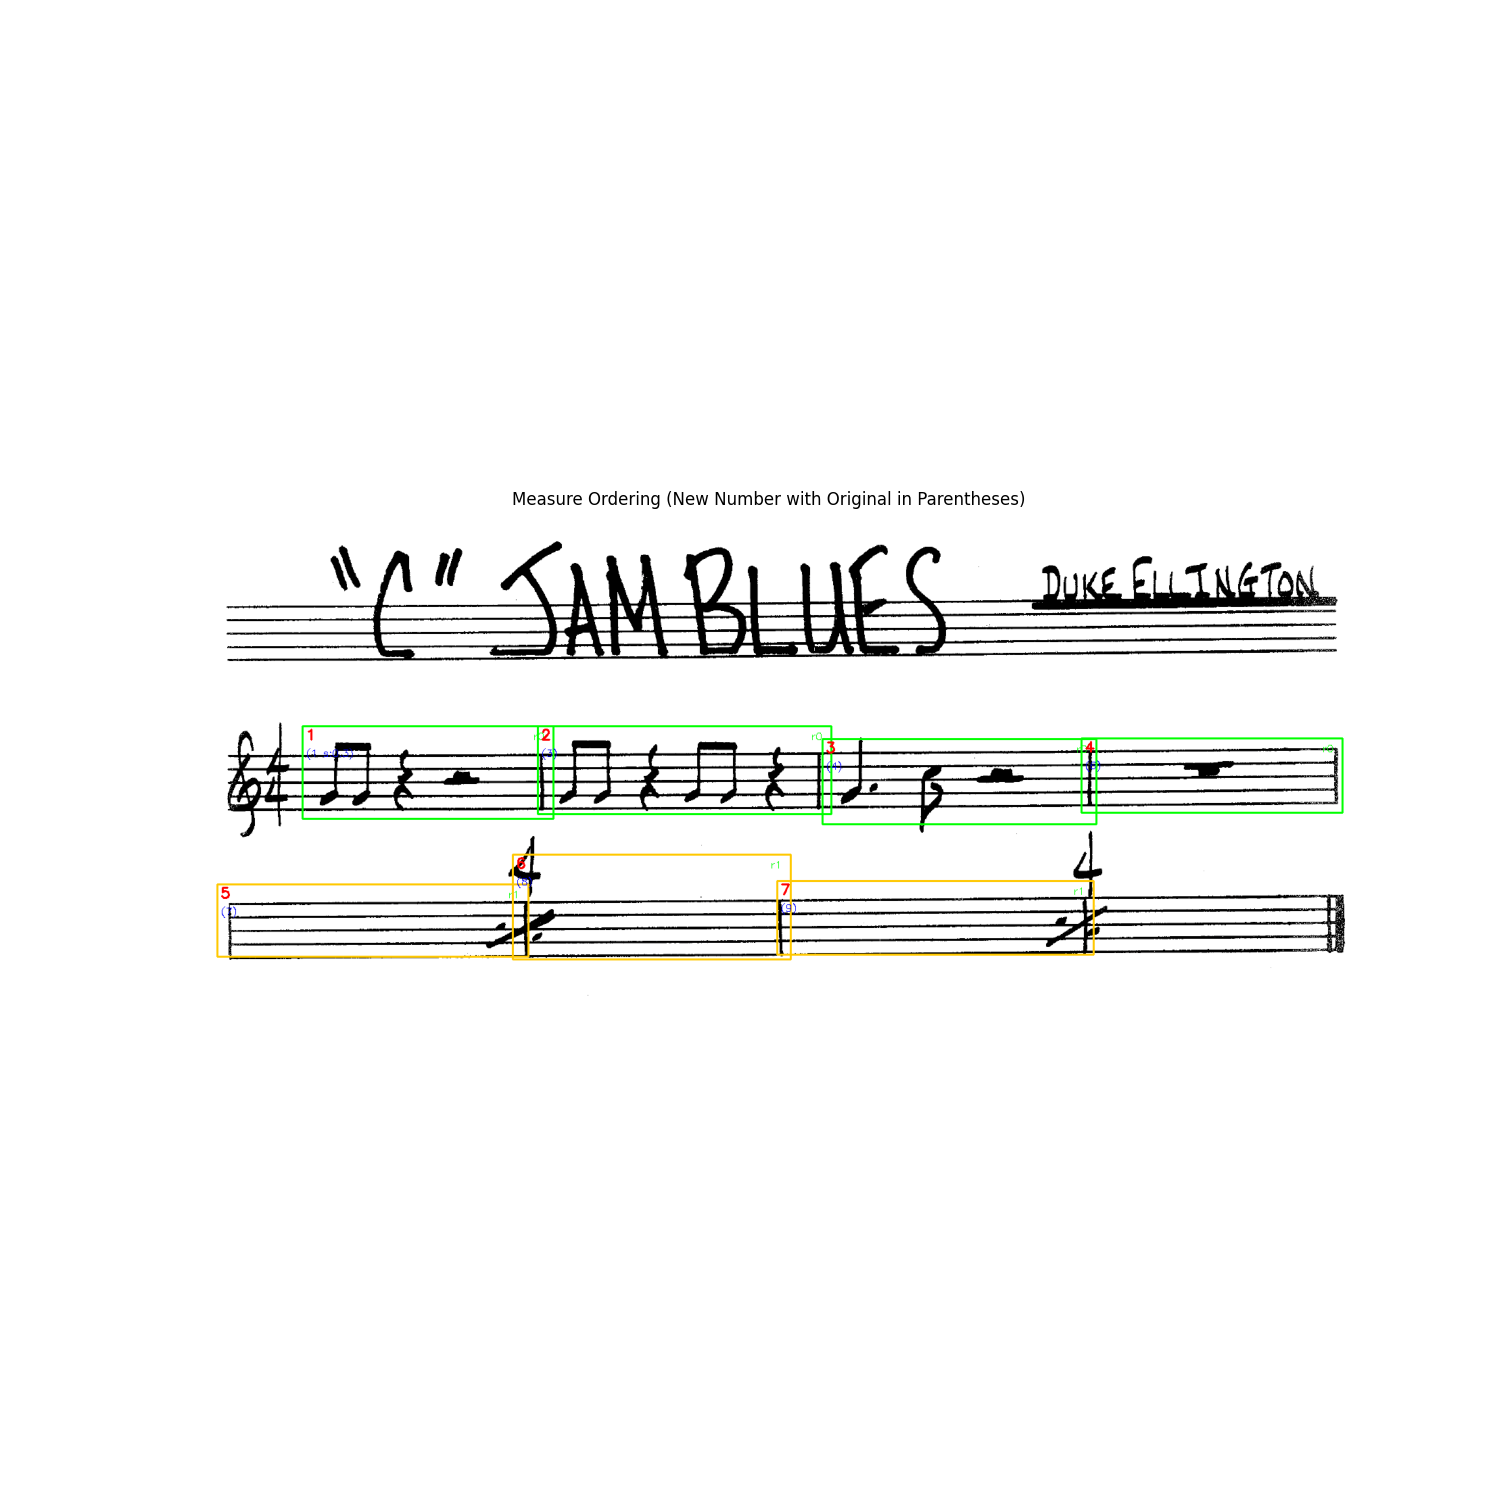 Measure Ordering (New Number with Original in Parentheses)
"C" JAM BLUES
DUKE ELLINGTON
1 2 r0 3 4
4
4
(3) (4)
4 4
6 r1
5 r1 (8) 7 r1
(7) (9)